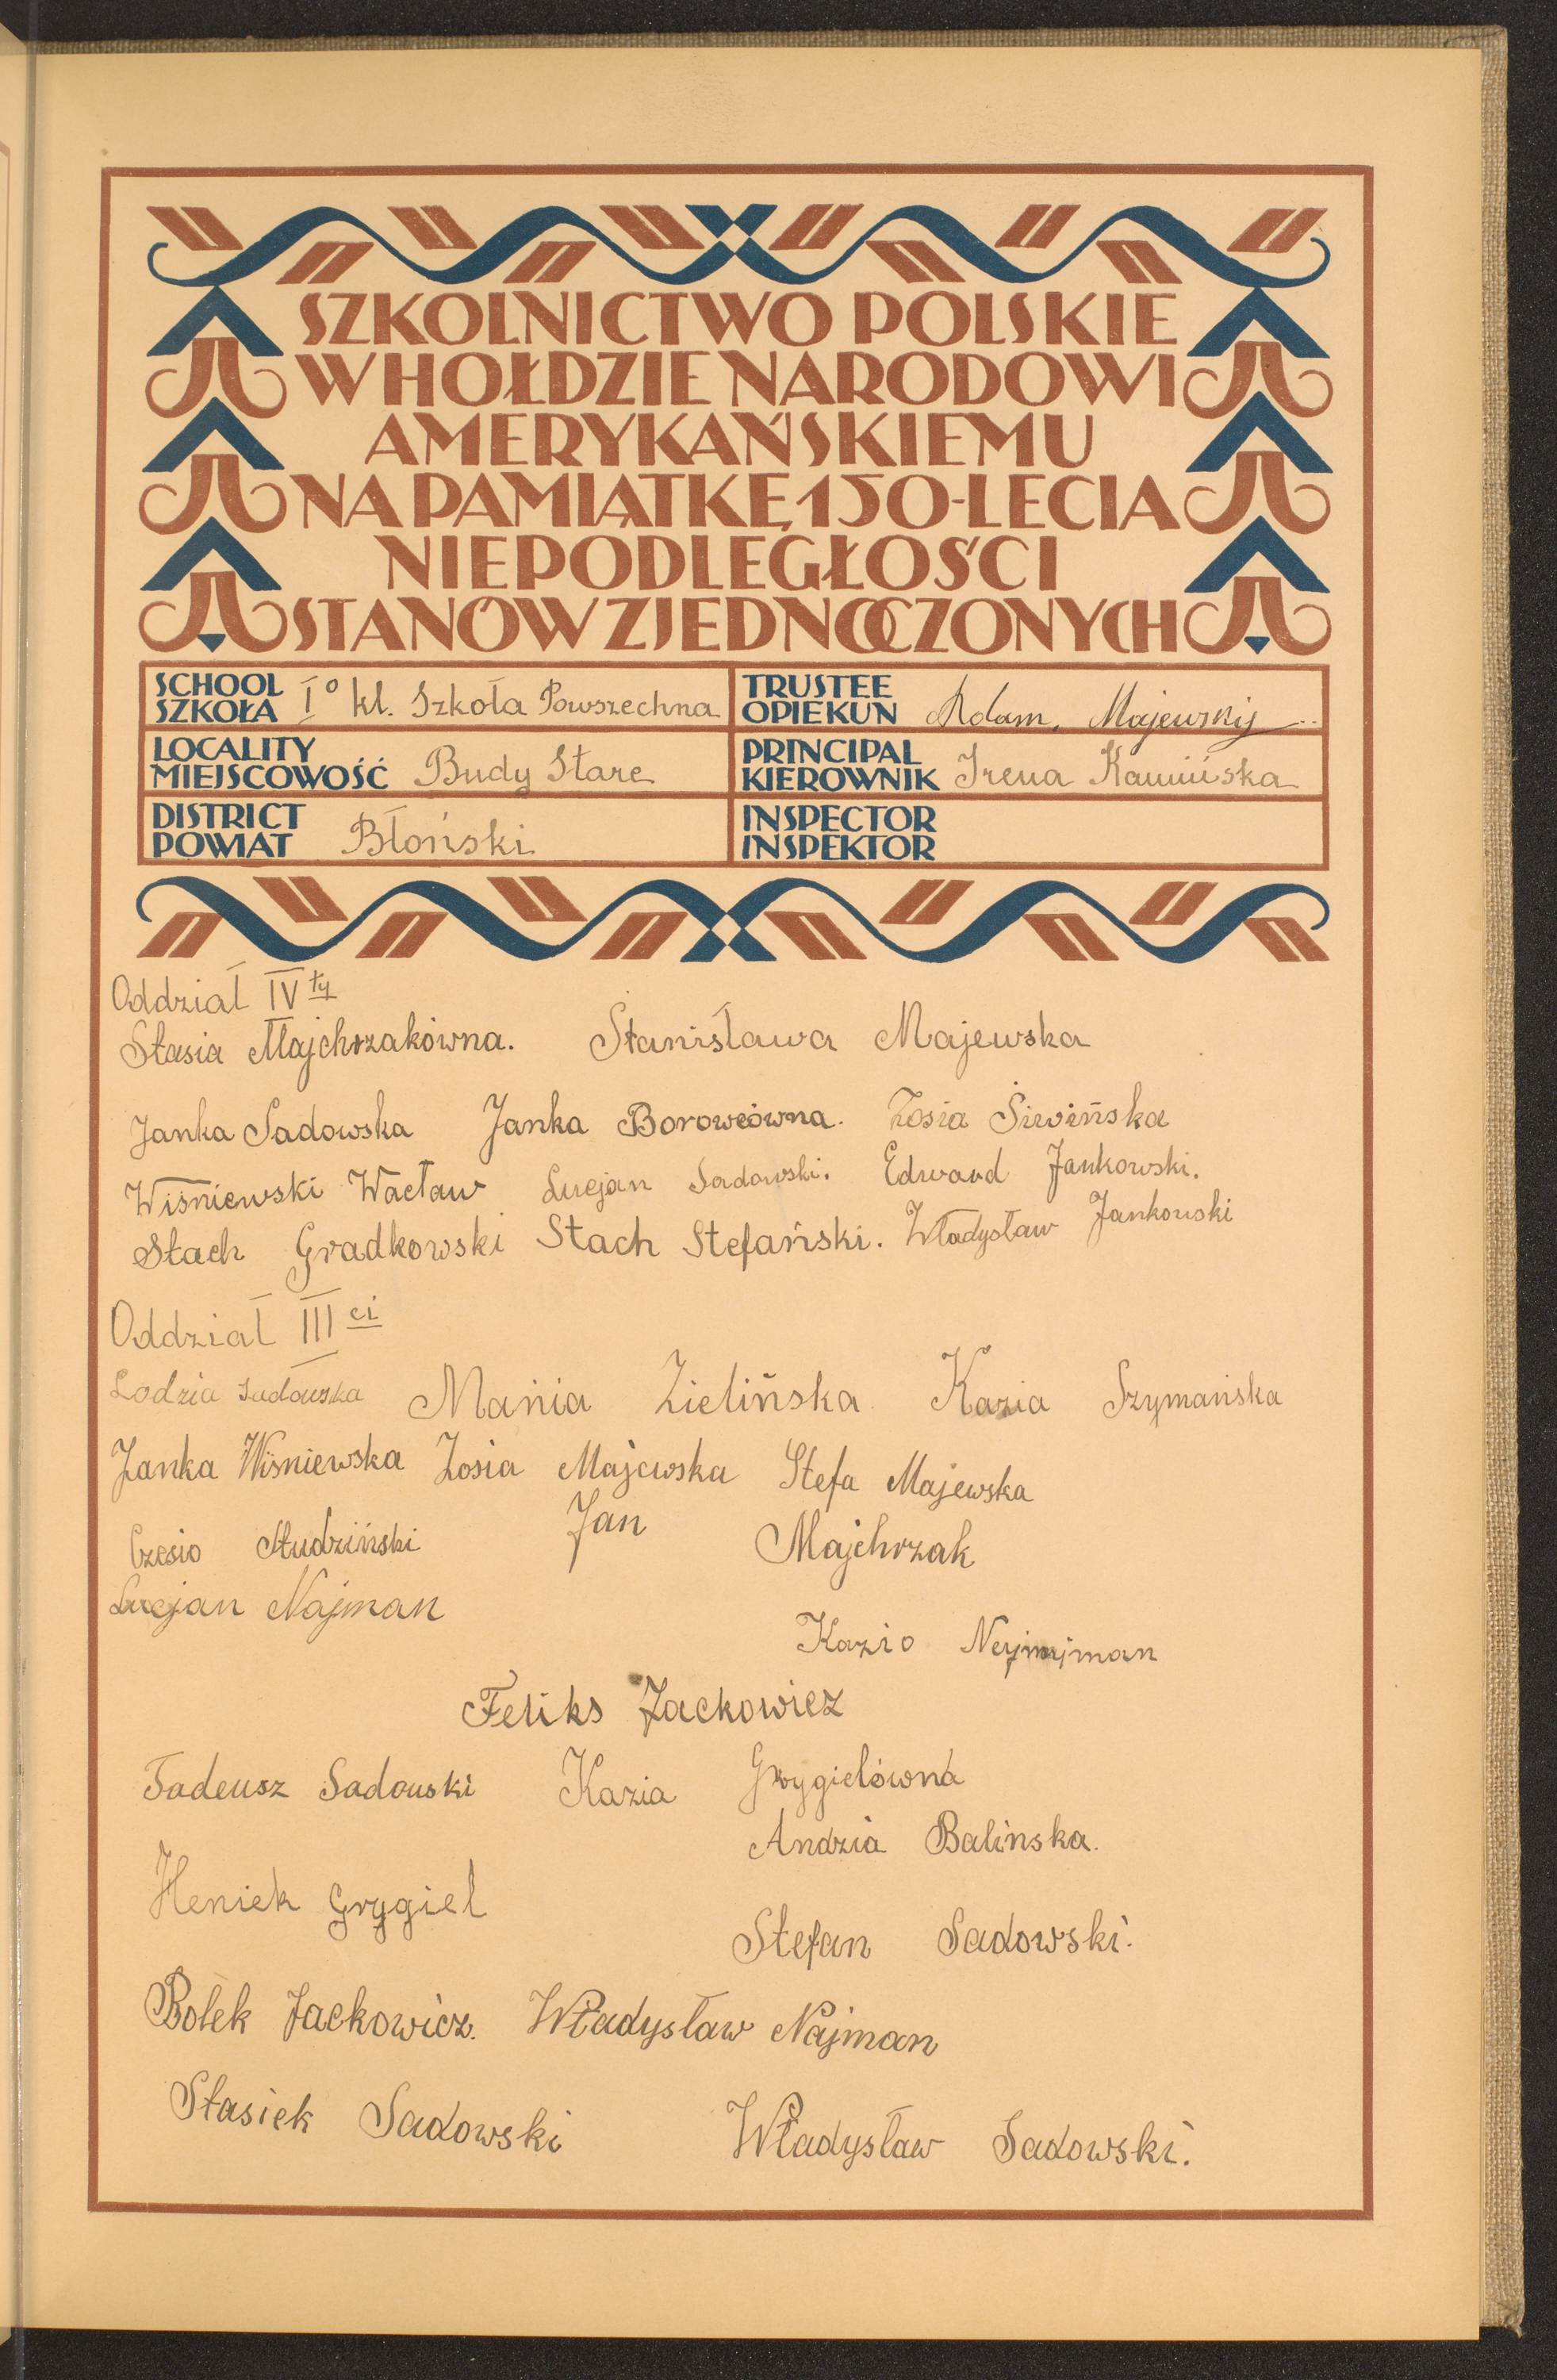 SZKOLNICTWO POLSKIE
W HOŁDZIE NARODOWI
AMERYKAŃSKIEMU
NA PAMIĄTKĘ 150-LECIA
NIEPODLEGŁOŚCI
STANÓW ZJEDNOCZONYCH
SCHOOL
SZKOŁA Iº kl. Szkoła Powszechna
TRUSTEE
OPIEKUN Adam Majewskij
LOCALITY
MIEJSCOWOŚĆ Budy Stare
PRINCIPAL
KIEROWNIK Irena Kamińska
DISTRICT
POWIAT Błoński
INSPECTOR
INSPEKTOR
Oddział IV ty
Stasia Majchrzakówna. Stanisława Majewska
Janka Sadowska Janka Borowcówna. Zosia Śiwińska
Wiśniewski Wacław Lucjan Sadowski. Edward Jankowski.
Stach Gradkowski Stach Stefański. Władysław Jankowski
Oddział III ci
Lodzia Sadowska Mania Zielińska Kazia Szymańska
Janka Wiśniewska Zosia Majewska Stefa Majewska
Czesio Studziński Jan Majchrzak
Lucjan Najman
Kazio
Feliks Jackowicz
Tadeusz Sadowski Kazia Grygielówna
Andzia Balinska.
Heniek Grygiel
Stefan Sadowski.
Bolek Jackowicz. Władysław Najman
Stasiek Sadowski Władysław Sadowski.